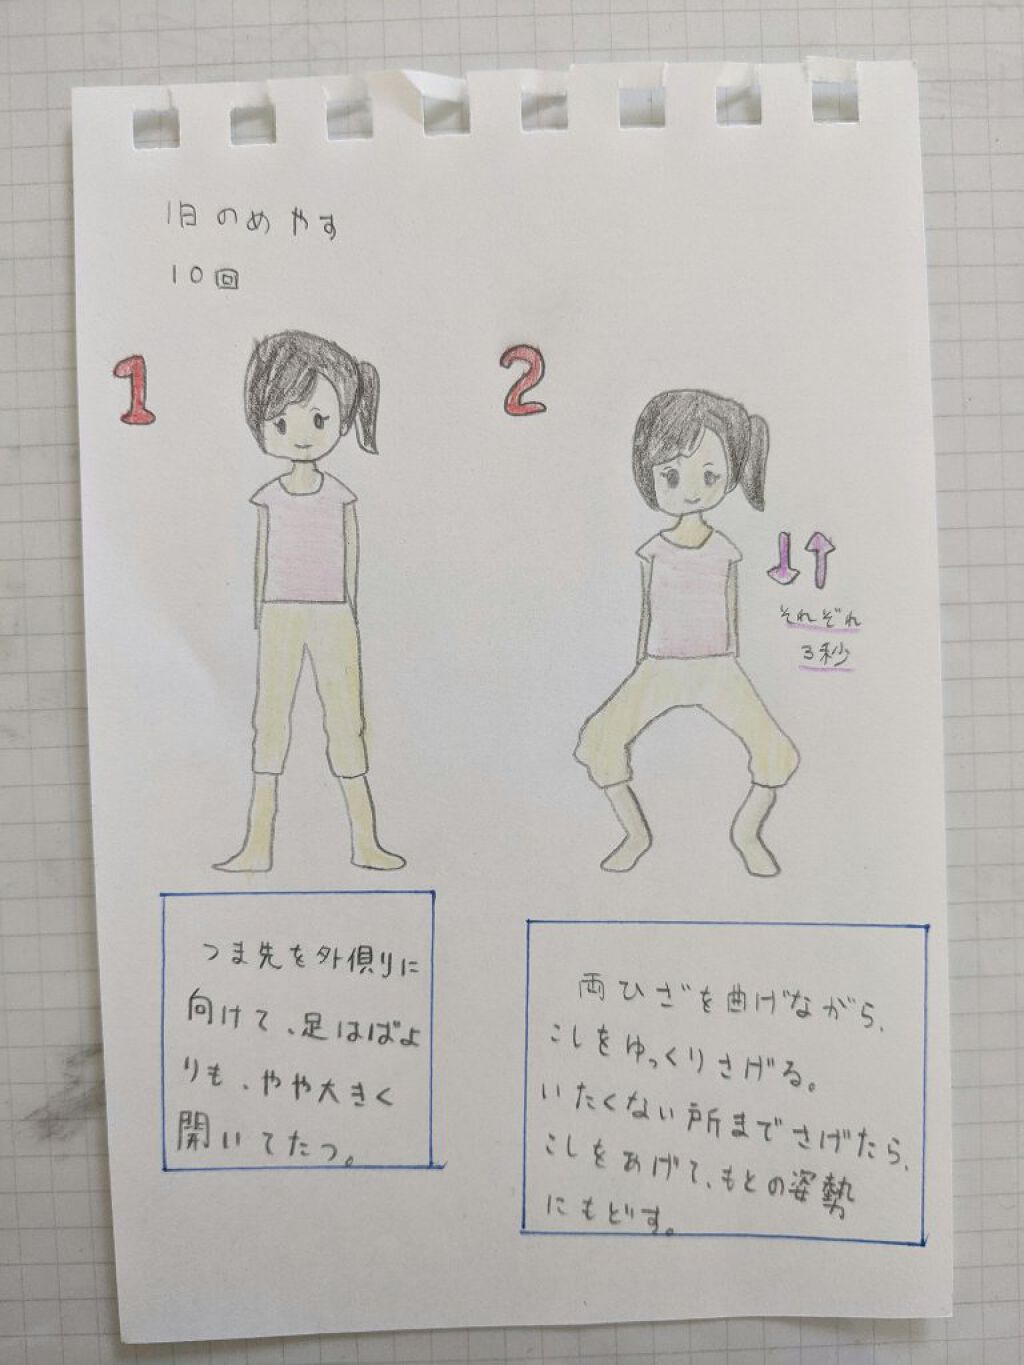 1日のめやす
10回
1
2
それぞれ
3秒
つま先を外側りに
向けて、足はばよ
りも、やや大きく
開いてたつ。
両ひざを曲げながら、
こしをゆっくりさげる。
いたくない所までさげたら、
こしをあげて、もとの姿勢
にもどす。